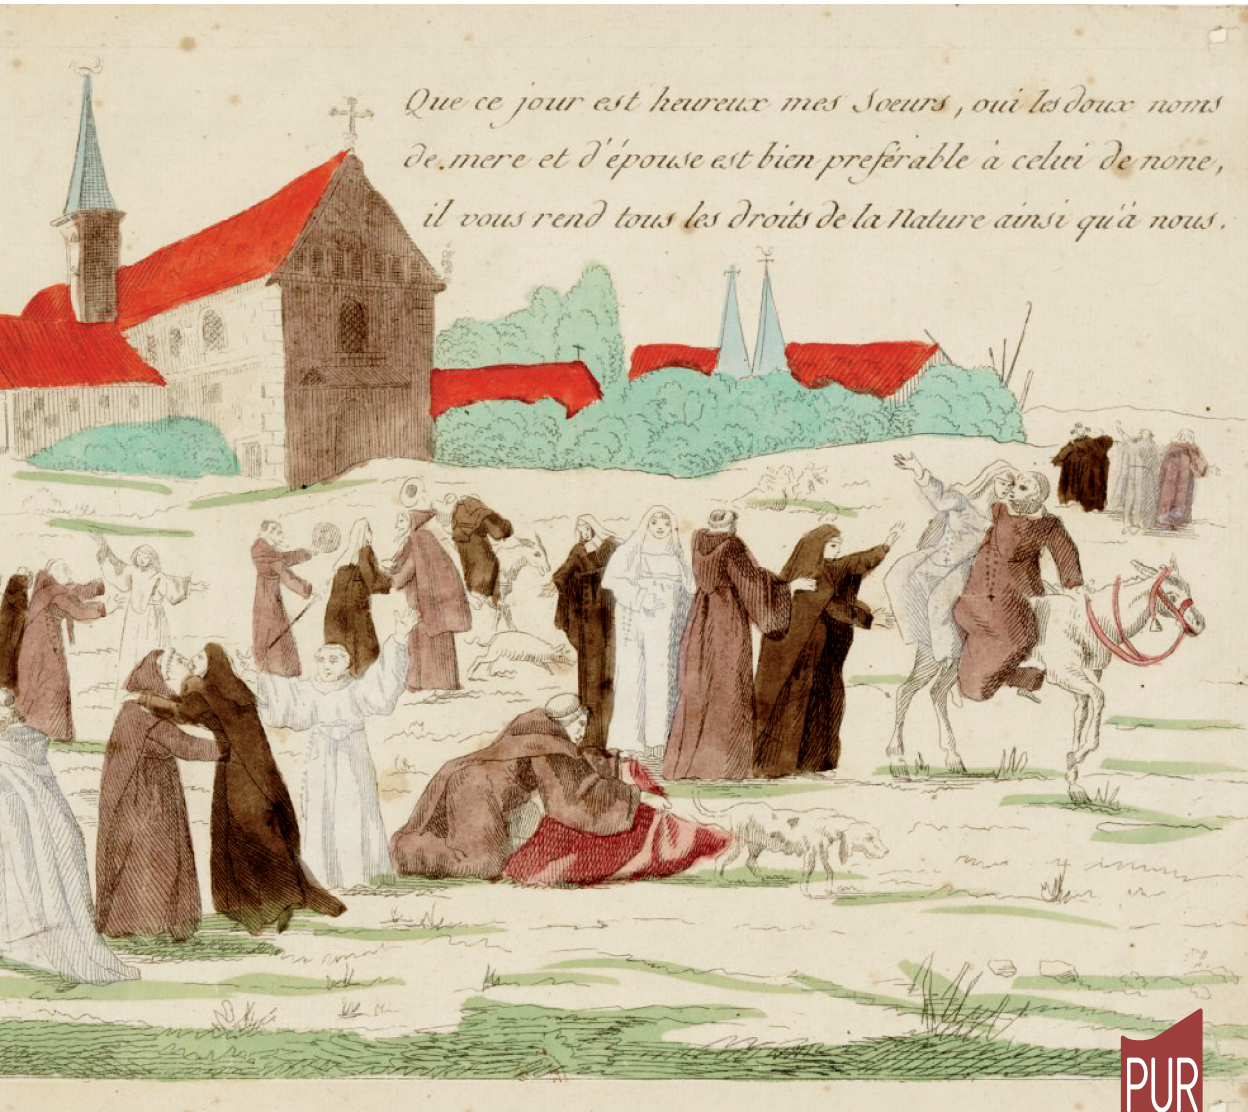 Que ce jour est heureux mes Soeurs, oui les doux noms
de mere et d'épouse est bien preférable à celui de none,
il vous rend tous les droits de la Nature ainsi qu'à nous.
PUR